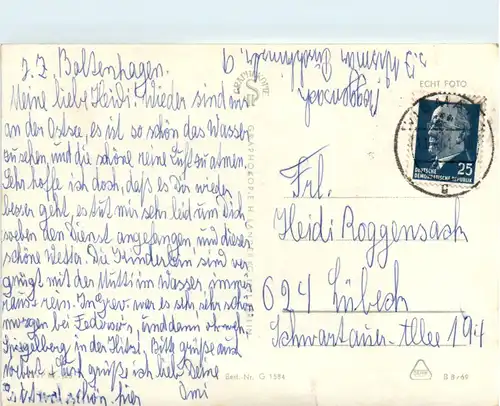 z. Z. Boltenhagen.
Meine liebe Heidi. Wieder sind wir
an der Ostsee, es ist so schön das Wasser
zu sehen, und die schöne reine Luft zu atmen.
Sehr hoffe ich doch, daß es Dir wieder
besser geht, es tut mir sehr leid um Dich
den Dienst angefangen, und dieses
schöne Wetter. Die Kinderlein sind ver
gnügt mit der Mutti im Wasser, immer
raus rein. In Grev. war es sehr sehr schön
morgen bei und dann
Spiegelberg in der Hitze. Bitte grüße auch
Norbert grüßt ich lieb Deine
schön hier Omi
Roggensack
ECHT FOTO
25
DEUTSCHE
DEMOKRATISCHE REPUBLIK
Frl.
Heidi Roggensack
624 Lübeck
Schwartauer-Allee 194
Best.-Nr. G 1584
B 8/69